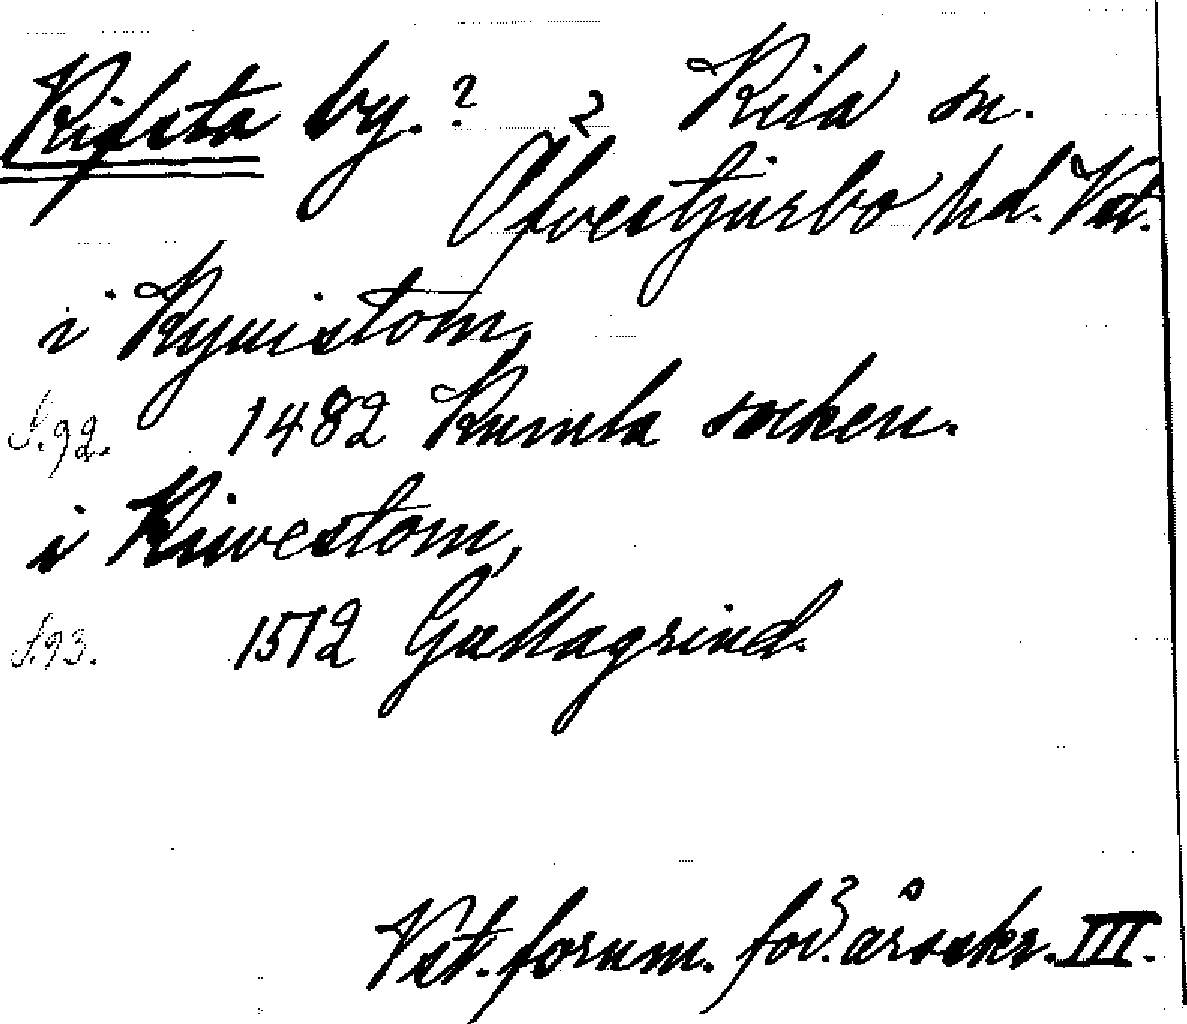 Kifsta by. ? Kila sn.
Öfvertjurbo hd. Vst.
i Kyuistom,
S. 92. 1482 Kumla socken.
i Kiwestom,
S. 93. 1512 Gallagrind.
Vst. fornm. för. årsskr. III.